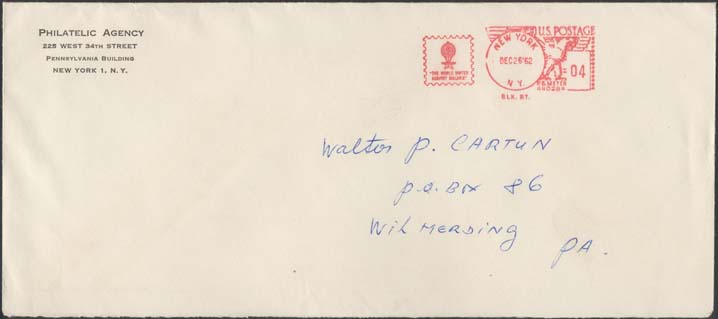 PHILATELIC AGENCY
225 WEST 34TH STREET
PENNSYLVANIA BUILDING
NEW YORK 1, N. Y.
"THE WORLD UNITED
AGAINST MALARIA"
NEW YORK
DEC 26 '62
N. Y.
BLK. RT.
U.S. POSTAGE
04
P.B. METER
Walter P. CARTUN
P.O. BOX 86
WILMERDING PA.